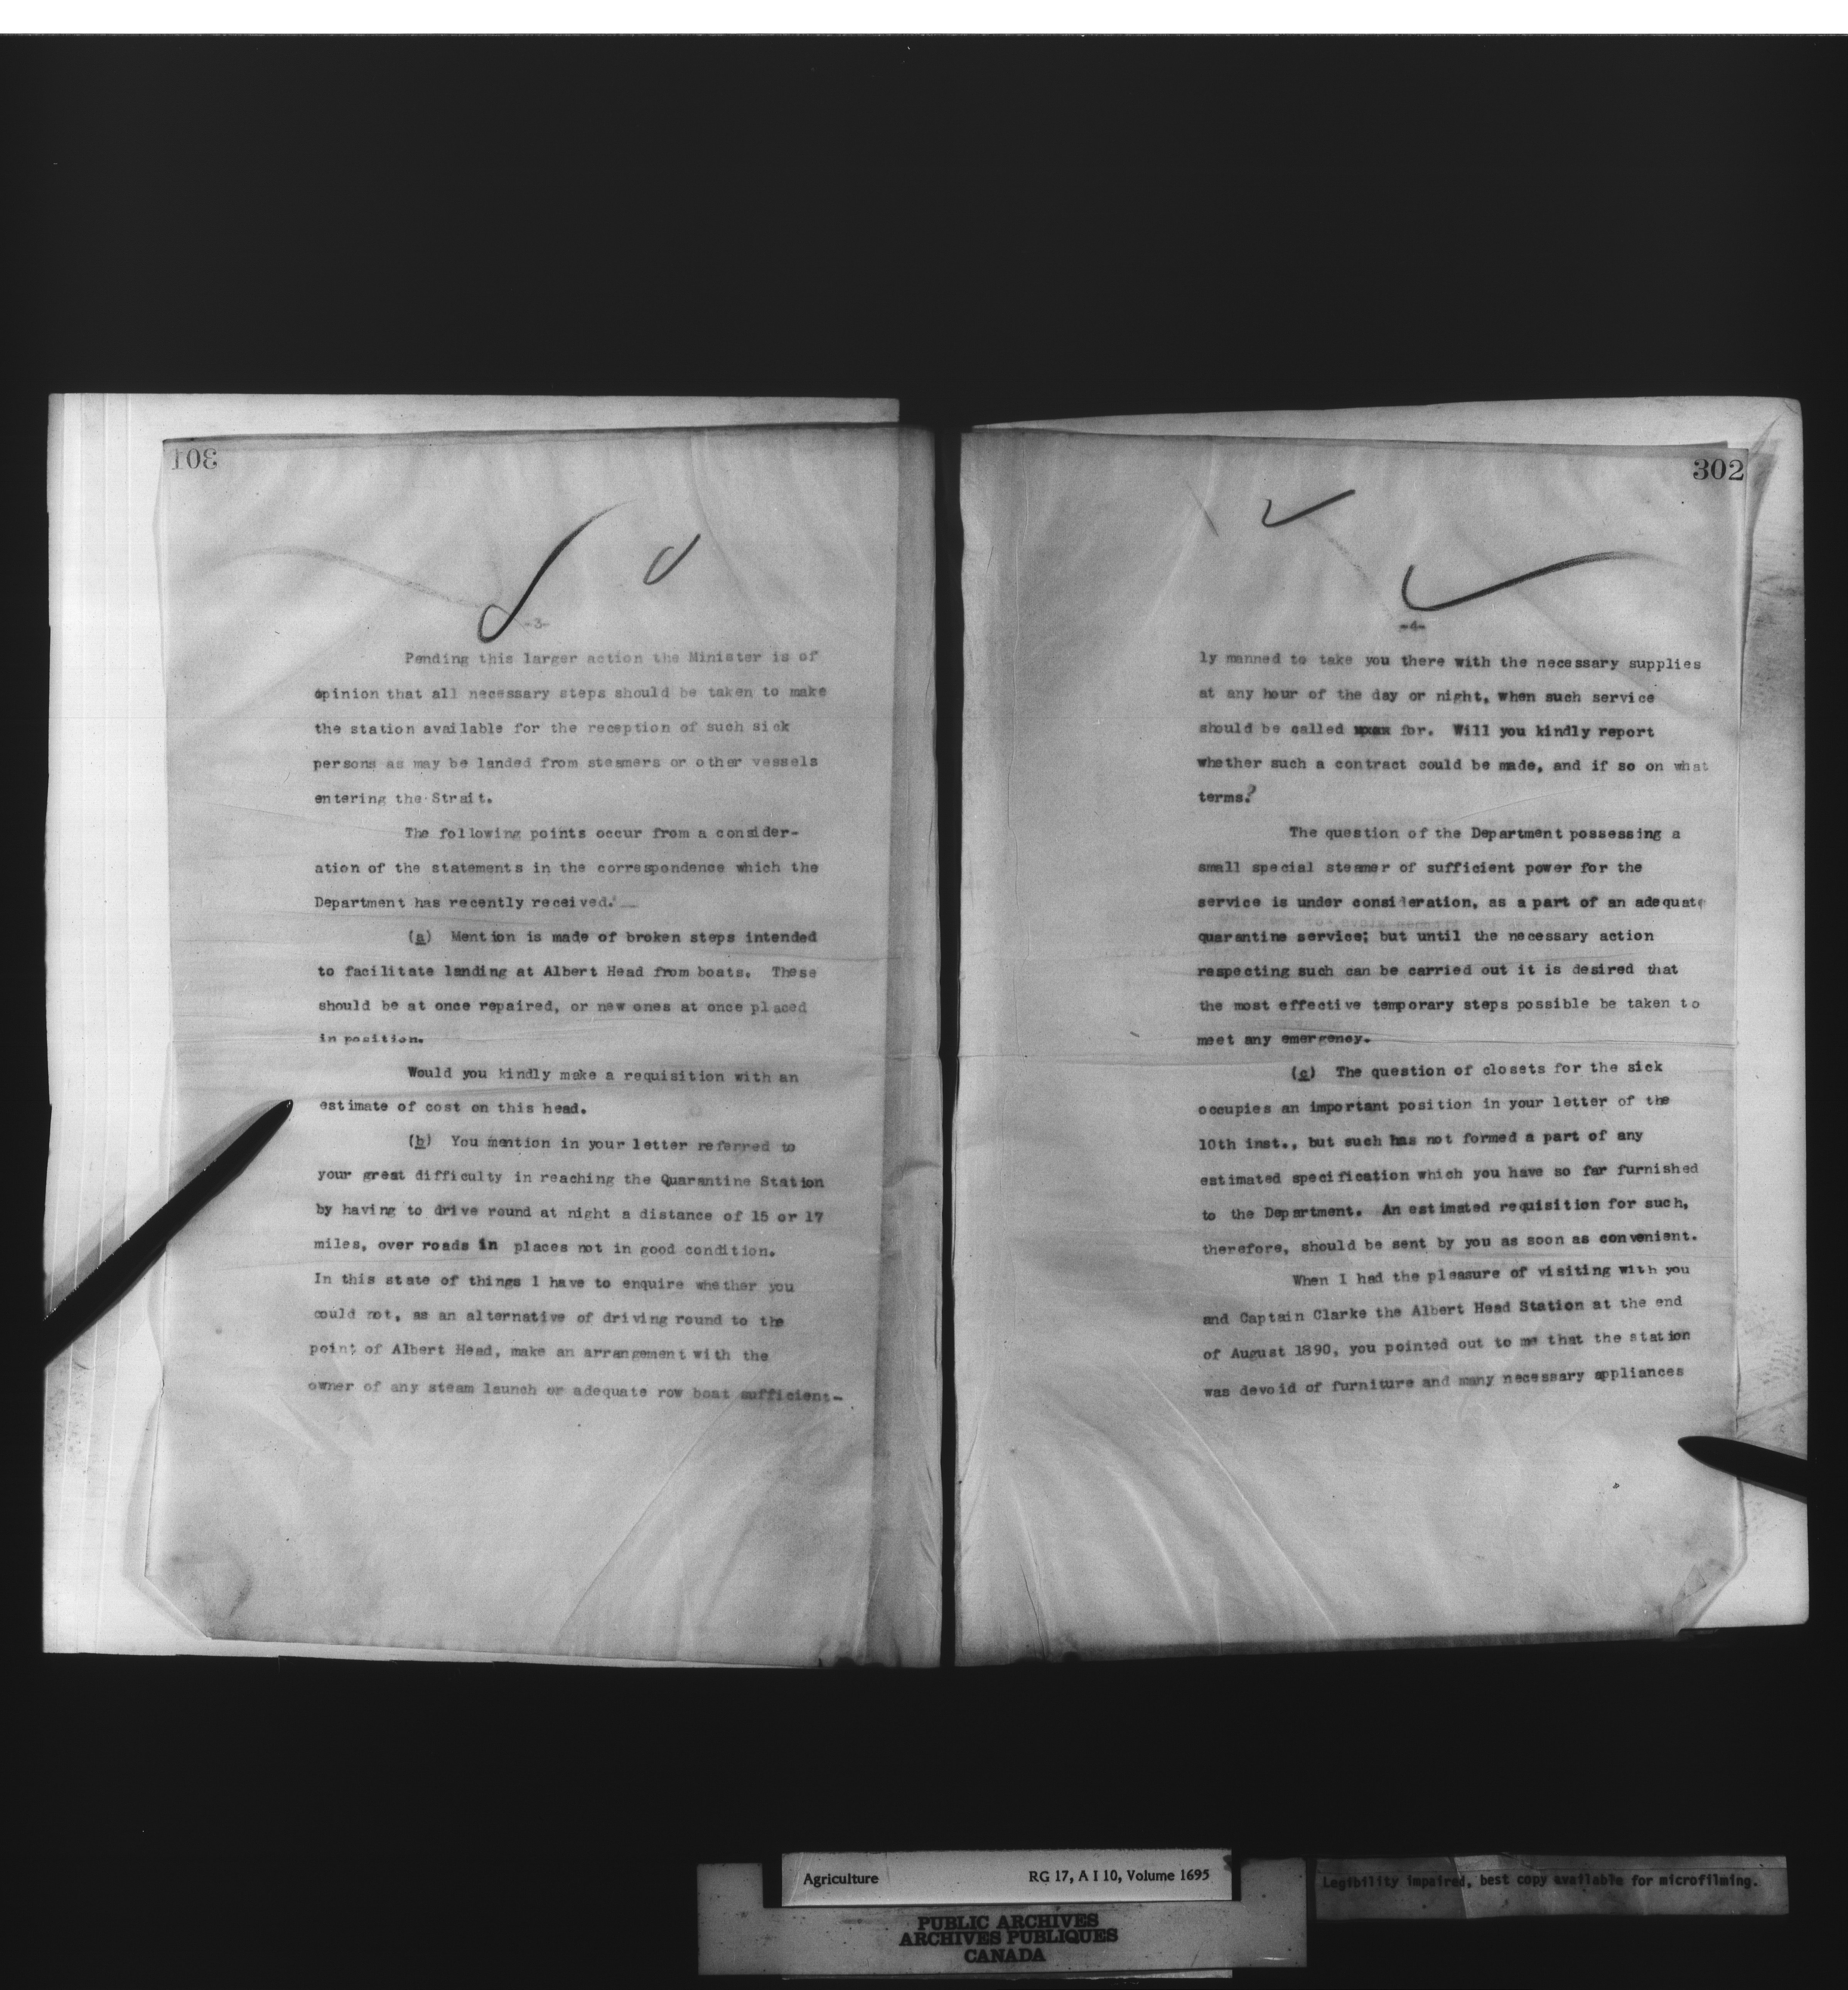 301
-3-
Pending this larger action the Minister is of
opinion that all necessary steps should be taken to make
the station available for the reception of such sick
persons as may be landed from steamers or other vessels
entering the Strait.
The following points occur from a consider-
ation of the statements in the correspondence which the
Department has recently received.
(a) Mention is made of broken steps intended
to facilitate landing at Albert Head from boats. These
should be at once repaired, or new ones at once placed
in position.
Would you kindly make a requisition with an
estimate of cost on this head.
(b) You mention in your letter referred to
your great difficulty in reaching the Quarantine Station
by having to drive round at night a distance of 15 or 17
miles, over roads in places not in good condition.
In this state of things I have to enquire whether you
could not, as an alternative of driving round to the
point of Albert Head, make an arrangement with the
owner of any steam launch or adequate row boat sufficient-
302
-4-
ly manned to take you there with the necessary supplies
at any hour of the day or night, when such service
should be called for. Will you kindly report
whether such a contract could be made, and if so on what
terms?
The question of the Department possessing a
small special steamer of sufficient power for the
service is under consideration, as a part of an adequate
quarantine service; but until the necessary action
respecting such can be carried out it is desired that
the most effective temporary steps possible be taken to
meet any emergency.
(c) The question of closets for the sick
occupies an important position in your letter of the
10th inst., but such has not formed a part of any
estimated specification which you have so far furnished
to the Department. An estimated requisition for such,
therefore, should be sent by you as soon as convenient.
When I had the pleasure of visiting with you
and Captain Clarke the Albert Head Station at the end
of August 1890, you pointed out to me that the station
was devoid of furniture and many necessary appliances
Agriculture RG 17, A I 10, Volume 1695
Legibility impaired, best copy available for microfilming.
PUBLIC ARCHIVES
ARCHIVES PUBLIQUES
CANADA